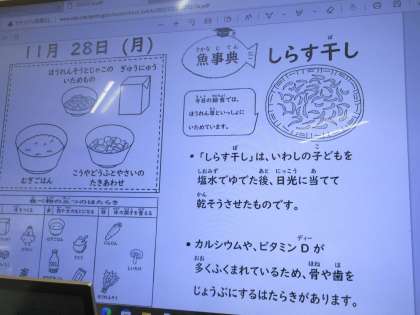 11月 28日 (月)
ほうれんそうとじゃこの
いためもの
ぎゅうにゅう
むぎごはん
こうやどうふとやさいの
たきあわせ
魚事典
さかな じ てん
今日の給食では、
ほうれん草といっしょに
いためています。
しらす干し
ぼ
•「しらす干し」は、いわしの子どもを
塩水でゆでた後、日光に当てて
乾そうさせたものです。
• カルシウムや、ビタミンDが
多くふくまれているため、骨や歯を
じょうぶにするはたらきがあります。